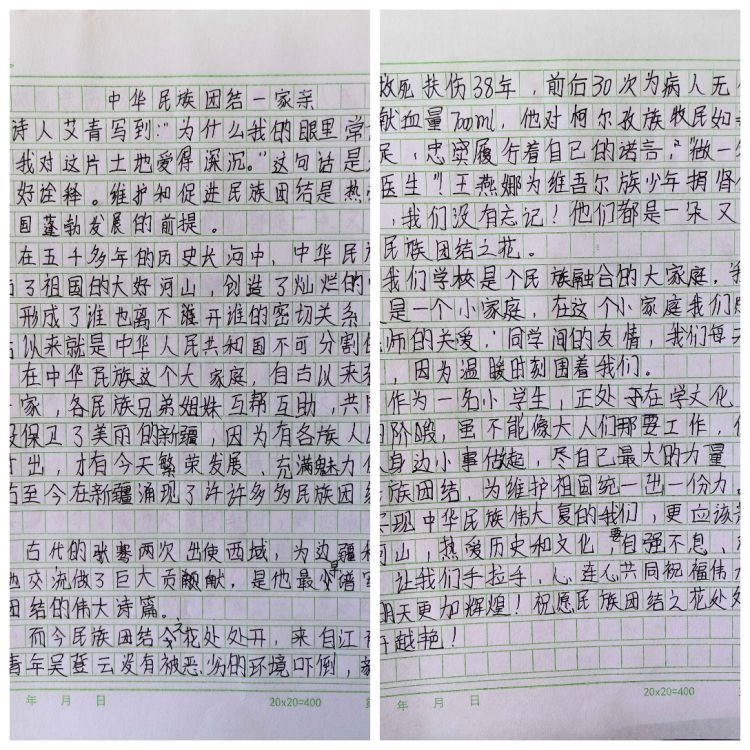 中华民族团结一家亲
诗人艾青写到:"为什么我的眼里常
我对这片土地爱得深沉。"这句话是
好诠释。维护和促进民族团结是热
国蓬勃发展的前提。
在五千多年的历史长河中,中华民族
了祖国的大好河山,创造了灿烂的
形成了谁也离不离开谁的密切关系
以来就是中华人民共和国不可分割
在中华民族这个大家庭,自古以来
家,各民族兄弟姐妹互帮互助,共同
保卫了美丽的新疆,因为有各族人民
出,才有今天繁荣发展、充满魅力
古至今在新疆涌现了许许多多民族团结
古代的张骞两次出使西域,为边疆和
交流做了巨大贡献献,是他最早谱写
团结的伟大诗篇。
而今民族团结之花处处开,来自江
青年吴登云没有被恶劣的环境吓倒,
救死扶伤38年,前后30次为病人无
献血量7000ml,他对柯尔孜族牧民如
足,忠实履行着自己的诺言,"做一
医生"!王燕娜为维吾尔族少年捐肾
,我们没有忘记!他们都是一朵又
民族团结之花。
我们学校是个民族融合的大家庭,我
是一个小家庭,在这个小家庭我们
师的关爱,同学间的友情,我们每天
,因为温暖时刻围着我们。
作为一名小学生,正处于在学文化
阶段,虽不能像大人们那要工作,
身边小事做起,尽自己最大的力量
族团结,为维护祖国统一出一份力。
实现中华民族伟大复的我们,更应该
河山,热爱历史和文化,要自强不息,
让我们手拉手,心连心共同祝福伟大
明天更加辉煌!祝愿民族团结之花处处
开越艳!
年 月 日
20x20=400
年 月 日
20x20=400